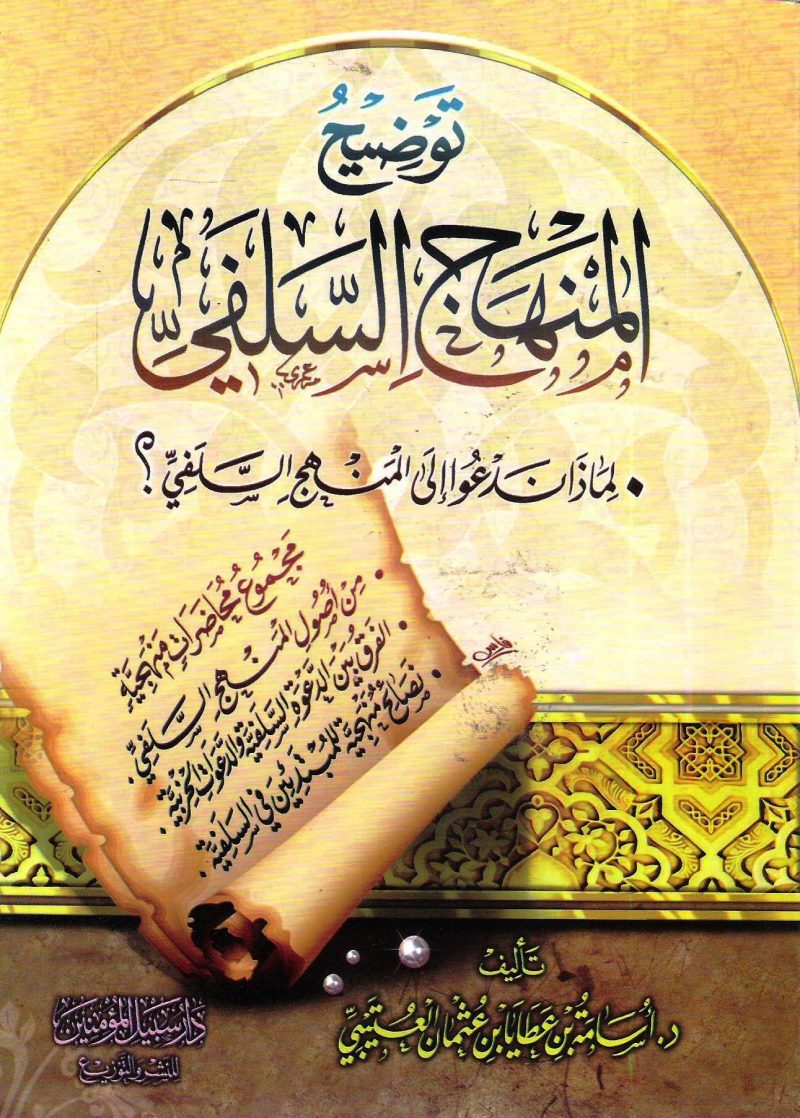 تَوْضِيحُ
المِنْهَاجِ السَّلَفِيِّ
• لِمَاذَا نَدْعُوا إِلَى المَنْهَجِ السَّلَفِيِّ؟
مَجْمُوعُ مُحَاضَرَاتٍ مَنْهَجِيَّةٍ
• مِنْ أُصُولِ المَنْهَجِ السَّلَفِيِّ.
• الفَرْقُ بَيْنَ الدَّعْوَةِ السَّلَفِيَّةِ وَالدَّعَوَاتِ الحِزْبِيَّةِ.
• نَصَائِحُ مَنْهَجِيَّةٌ لِلْمُبْتَدِئِينَ فِي السَّلَفِيَّةِ.
فراس
تَأْلِيفُ
د. أُسَامَةُ بْنُ عَطَايَا بْنِ عُثْمَانَ العُتَيْبِيُّ
دار سبيل المؤمنين
للنشر والتوزيع